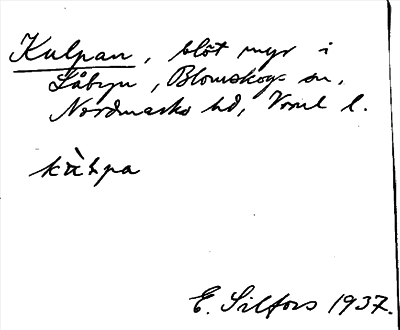 Kulpan, blöt myr i
Låbyn, Blomskogs sn,
Nordmarks hd, Vrml l.
E. Silfors 1937.